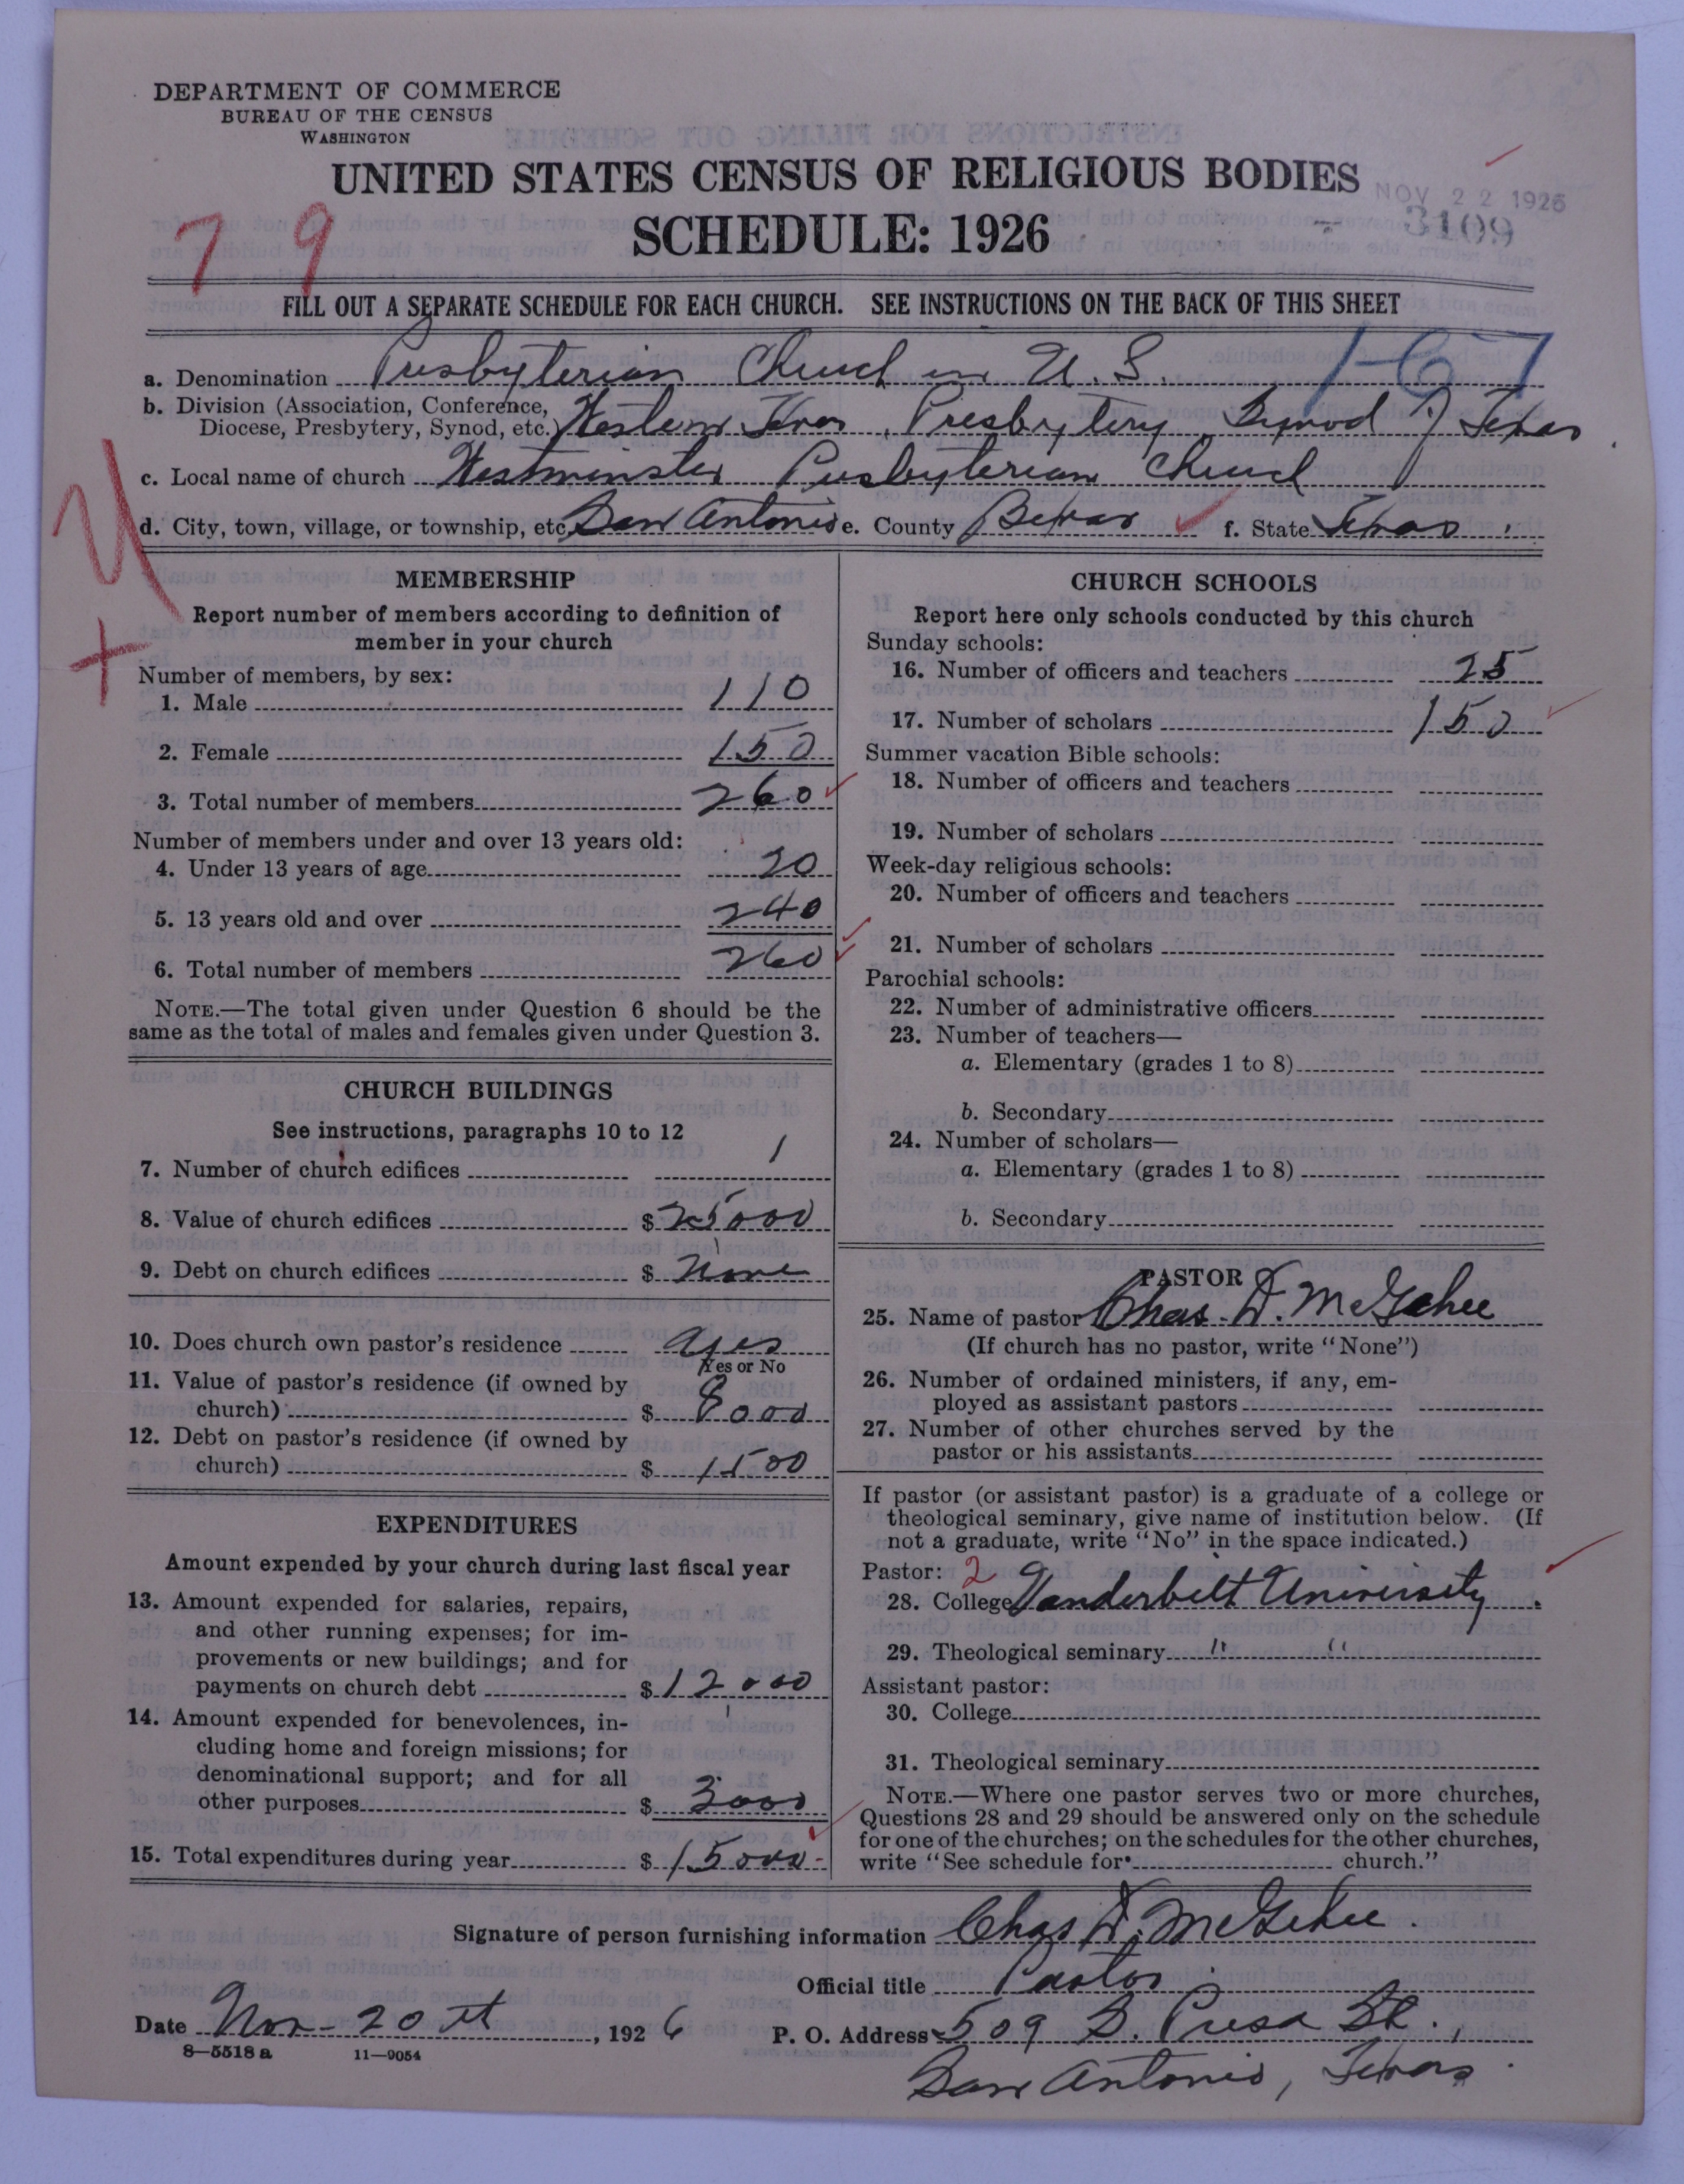 DEPARTMENT OF COMMERCE
BUREAU OF THE CENSUS
WASHINGTON
UNITED STATES CENSUS OF RELIGIOUS BODIES
NOV 22 1926
SCHEDULE: 1926
3109
7 9
FILL OUT A SEPARATE SCHEDULE FOR EACH CHURCH. SEE INSTRUCTIONS ON THE BACK OF THIS SHEET
1-67
a. Denomination Presbyterian Church in U. S.
b. Division (Association, Conference, Diocese, Presbytery, Synod, etc.) Western Texas Presbytery Synod of Texas
c. Local name of church Westminster Presbyterian Church
d. City, town, village, or township, etc. San Antonio e. County Bexar f. State Texas
MEMBERSHIP
Report number of members according to definition of
member in your church
Number of members, by sex:
1. Male 110
2. Female 150
3. Total number of members 260
Number of members under and over 13 years old:
4. Under 13 years of age 20
5. 13 years old and over 240
6. Total number of members 260
NOTE.—The total given under Question 6 should be the
same as the total of males and females given under Question 3.
CHURCH BUILDINGS
See instructions, paragraphs 10 to 12
7. Number of church edifices 1
8. Value of church edifices $ 25000
9. Debt on church edifices $ None
10. Does church own pastor's residence yes
Yes or No
11. Value of pastor's residence (if owned by
church) $ 8000
12. Debt on pastor's residence (if owned by
church) $ 1500
EXPENDITURES
Amount expended by your church during last fiscal year
13. Amount expended for salaries, repairs,
and other running expenses; for im-
provements or new buildings; and for
payments on church debt $ 12000
14. Amount expended for benevolences, in-
cluding home and foreign missions; for
denominational support; and for all
other purposes $ 3000
15. Total expenditures during year $ 15000-
CHURCH SCHOOLS
Report here only schools conducted by this church
Sunday schools:
16. Number of officers and teachers 25
17. Number of scholars 150
Summer vacation Bible schools:
18. Number of officers and teachers
19. Number of scholars
Week-day religious schools:
20. Number of officers and teachers
21. Number of scholars
Parochial schools:
22. Number of administrative officers
23. Number of teachers—
a. Elementary (grades 1 to 8)
b. Secondary
24. Number of scholars—
a. Elementary (grades 1 to 8)
b. Secondary
PASTOR
25. Name of pastor Chas. D. McGehee
(If church has no pastor, write "None")
26. Number of ordained ministers, if any, em-
ployed as assistant pastors
27. Number of other churches served by the
pastor or his assistants
If pastor (or assistant pastor) is a graduate of a college or
theological seminary, give name of institution below. (If
not a graduate, write "No" in the space indicated.)
Pastor: 2
28. College Vanderbilt University.
29. Theological seminary " "
Assistant pastor:
30. College
31. Theological seminary
NOTE.—Where one pastor serves two or more churches,
Questions 28 and 29 should be answered only on the schedule
for one of the churches; on the schedules for the other churches,
write "See schedule for church."
Signature of person furnishing information Chas D. McGehee.
Official title Pastor
Date Nov-20th, 1926 P. O. Address 509 S. Presa St.,
8—5518a 11—9054
San Antonio, Texas.